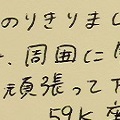 のりきりまし
、周囲に
頑張って下
59K